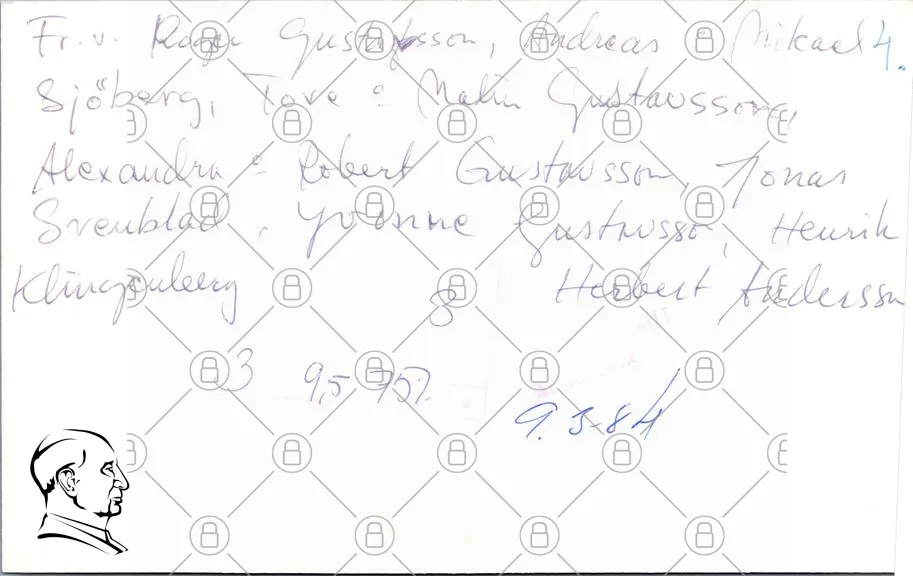 Fr.v. Roger Gustafsson, Andreas : Mikael 4.
Sjöberg, Tove : Malin Gustavsson,
Alexandra : Robert Gustavsson, Jonas
Svenblad, Yvonne Gustavsso, Henrik
Klingenberg & Herbert Andersson
3 9,5 75%
9.3-84